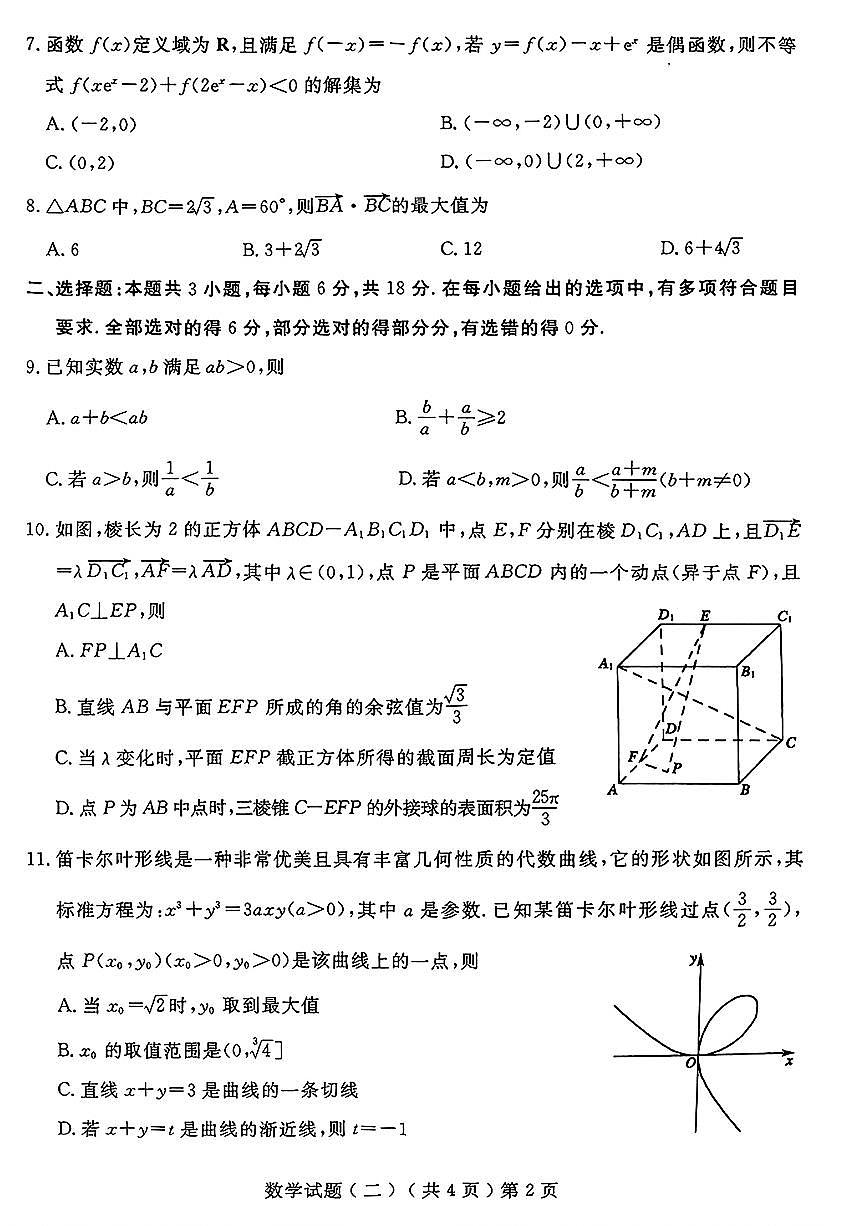 7. 函数 f(x)定义域为 R,且满足 f(-x)=-f(x),若 y=f(x)-x+eˣ 是偶函数,则不等
式 f(xeˣ-2)+f(2eˣ-x)<0 的解集为
A. (-2,0) B. (-∞,-2)∪(0,+∞)
C. (0,2) D. (-∞,0)∪(2,+∞)
8. △ABC 中,BC=2√3,A=60°,则BA→·BC→的最大值为
A. 6 B. 3+2√3 C. 12 D. 6+4√3
二、选择题:本题共 3 小题,每小题 6 分,共 18 分. 在每小题给出的选项中,有多项符合题目
要求. 全部选对的得 6 分,部分选对的得部分分,有选错的得 0 分.
9. 已知实数 a,b 满足 ab>0,则
A. a+b<ab B. b/a+a/b≥2
C. 若 a>b,则 1/a<1/b D. 若 a<b,m>0,则 a/b<(a+m)/(b+m)(b+m≠0)
10. 如图,棱长为 2 的正方体 ABCD-A₁B₁C₁D₁ 中,点 E,F 分别在棱 D₁C₁,AD 上,且D₁E→
=λD₁C₁→,AF→=λAD→,其中 λ∈(0,1),点 P 是平面 ABCD 内的一个动点(异于点 F),且
A₁C⊥EP,则
A. FP⊥A₁C
B. 直线 AB 与平面 EFP 所成的角的余弦值为√3/3
C. 当 λ 变化时,平面 EFP 截正方体所得的截面周长为定值
D. 点 P 为 AB 中点时,三棱锥 C-EFP 的外接球的表面积为25π/3
D₁ E C₁
A₁ B₁
D C
F P
A B
11. 笛卡尔叶形线是一种非常优美且具有丰富几何性质的代数曲线,它的形状如图所示,其
标准方程为:x³+y³=3axy(a>0),其中 a 是参数. 已知某笛卡尔叶形线过点(3/2,3/2),
点 P(x₀,y₀)(x₀>0,y₀>0)是该曲线上的一点,则
A. 当 x₀=√2时,y₀ 取到最大值
B. x₀ 的取值范围是(0,∛4]
C. 直线 x+y=3 是曲线的一条切线
D. 若 x+y=t 是曲线的渐近线,则 t=-1
y
O x
数学试题(二)(共 4 页)第 2 页